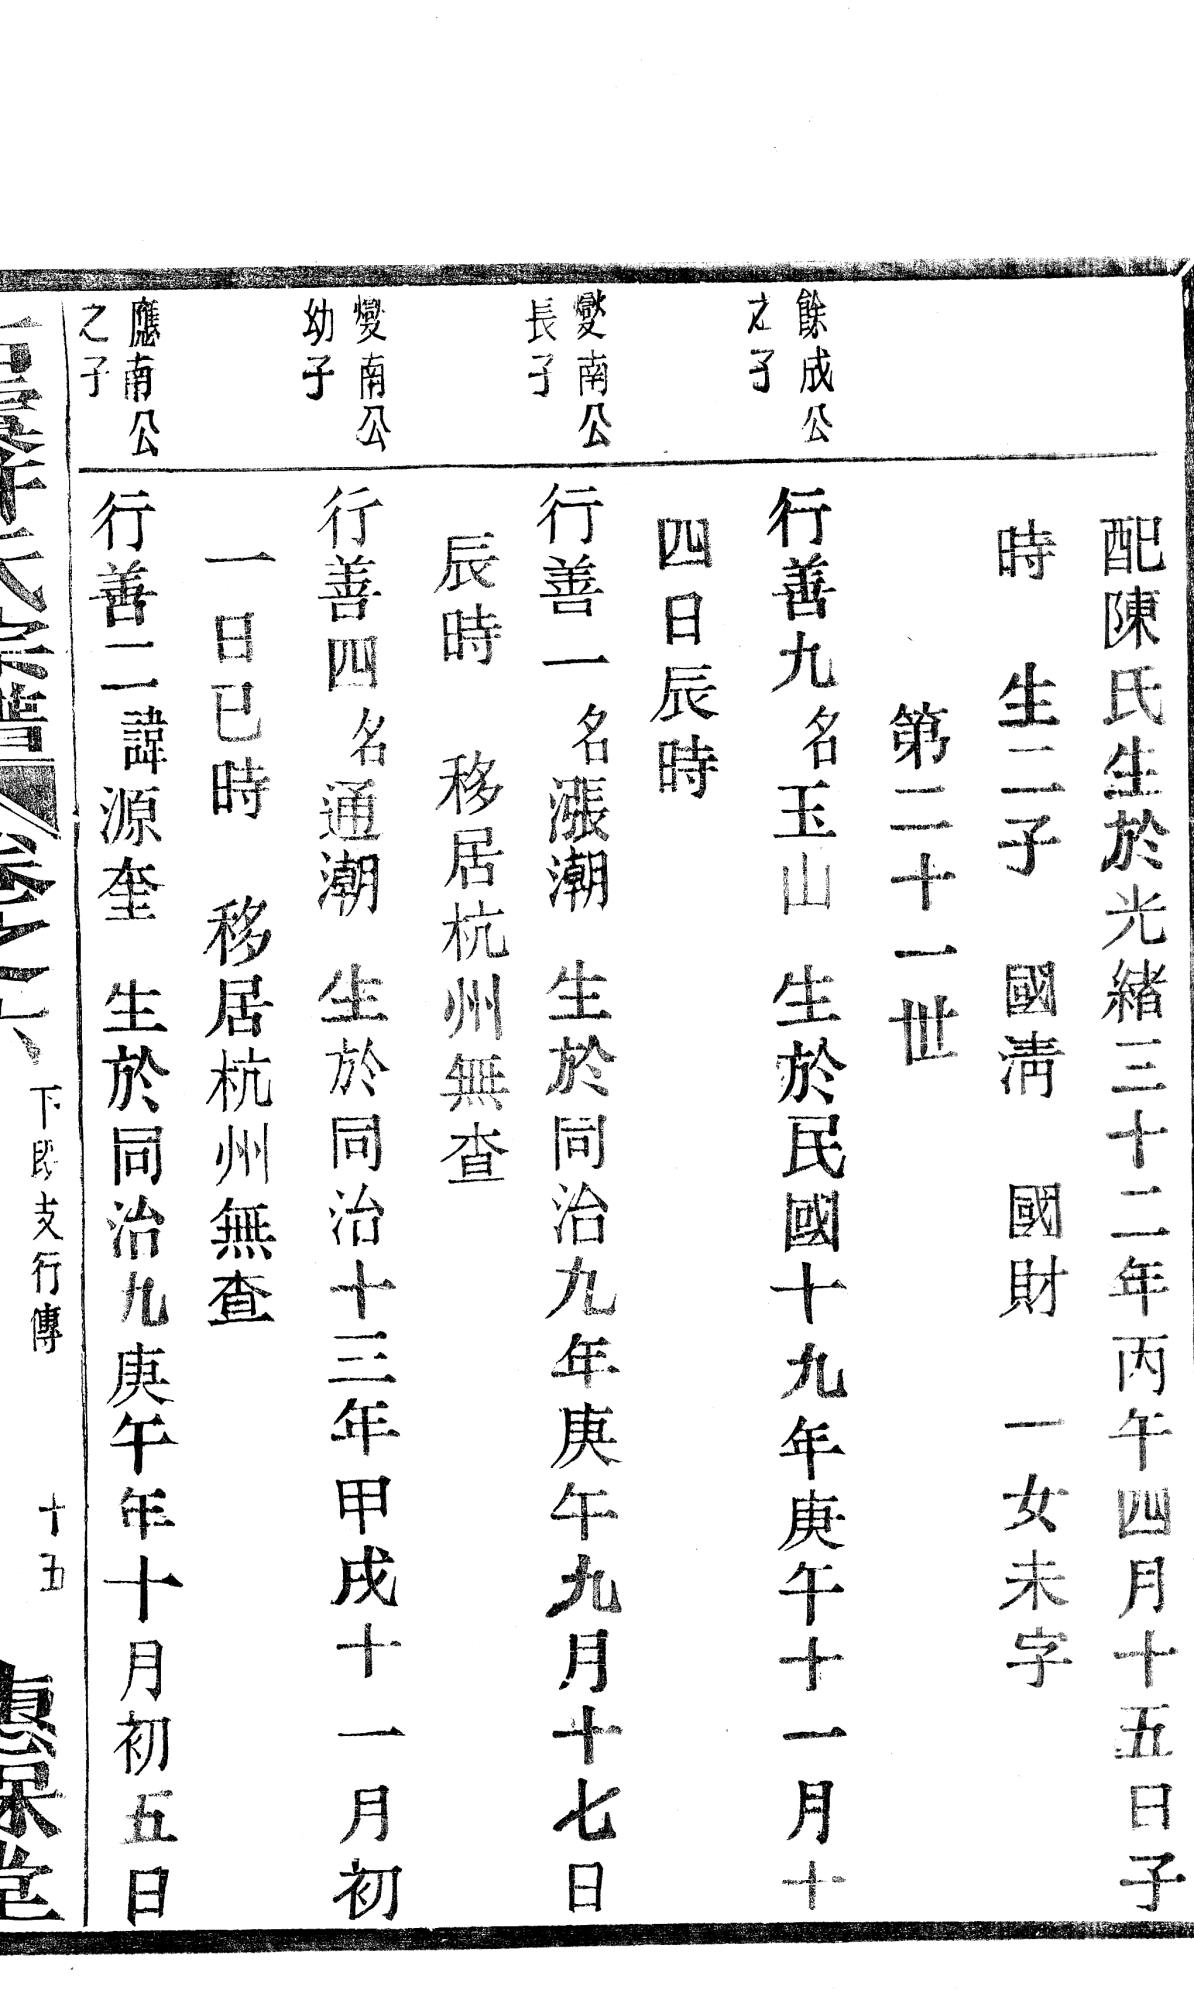 配陳氏生於光緒三十二年丙午四月十五日子
時　生二子　國淸　國財　一女未字
第二十一世
餘成公
之子
行善九名玉山　生於民國十九年庚午十一月十
四日辰時
燮南公
長子
行善一名漲潮　生於同治九年庚午九月十七日
辰時　移居杭州無查
燮南公
幼子
行善四名通潮　生於同治十三年甲戌十一月初
一日巳時　移居杭州無查
應南公
之子
行善二諱源奎　生於同治九庚午年十月初五日
氏宗譜
卷之六
下段支行傳
十五
惠保堂